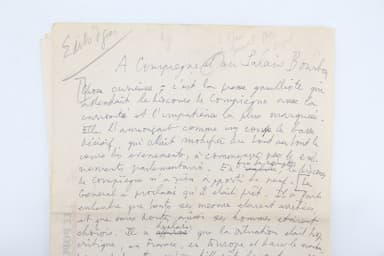 Edito
A Compiègne et au Palais Bourbon
Chose curieuse, c'est la presse gaulliste qui
attendait le discours de Compiègne avec la
curiosité et l'impatience la plus
Elle l'annonçait comme un coup de barre
décisif, qui allait modifier du tout au tout le
cours des événements, à commencer par les
parlementaires. En le discours
de Compiègne n'a rien apporté de neuf. Le
Général a proclamé qu'il était prêt. Il
entendre que toutes ses mesures étaient arrêtées
et que même ses hommes étaient
choisis. Il a que la situation était
critique, en France, en Europe et dans le monde